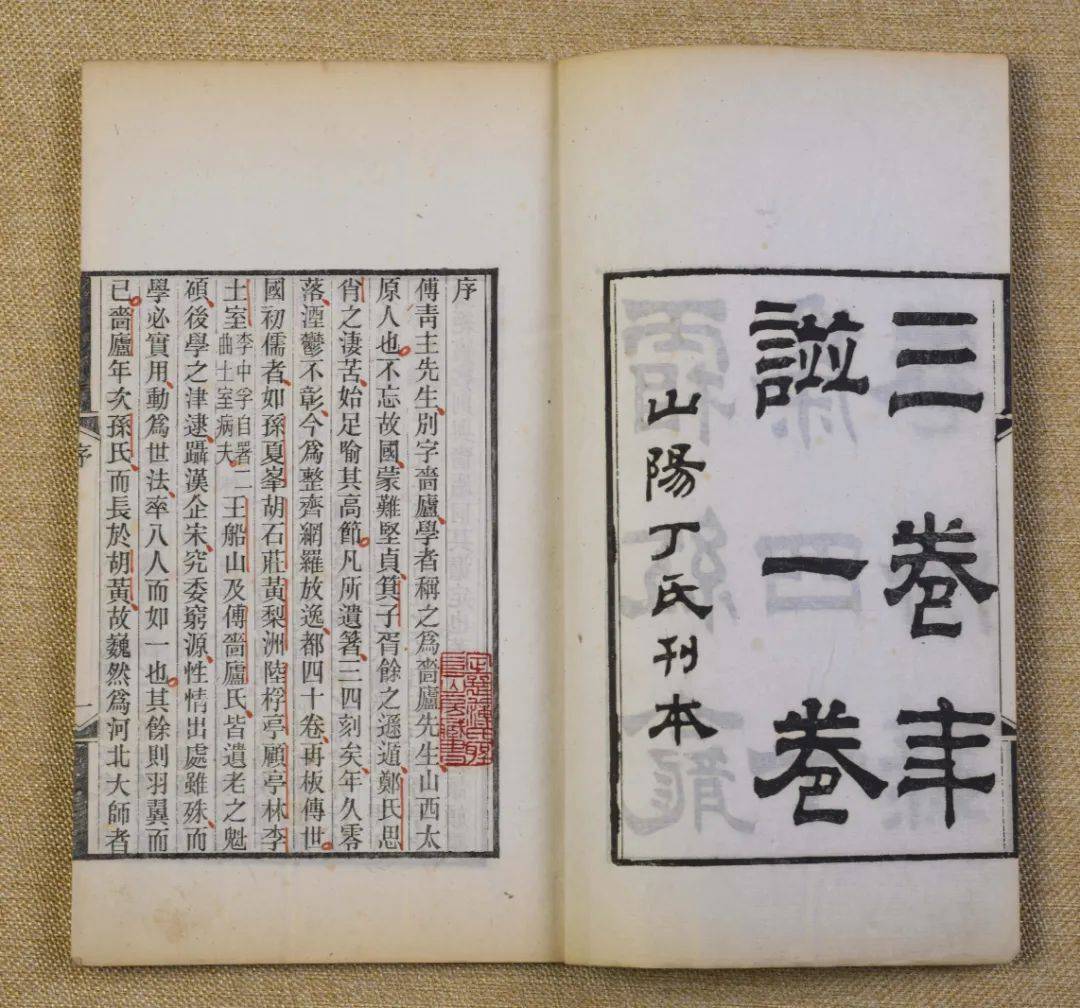 三卷年
諩一卷
山陽丁氏刊本
序
傅青主先生別字嗇廬學者稱之爲嗇廬先生山西太
原人也不忘故國蒙難堅貞箕子胥餘之遯遁鄭氏思
肖之淒苦始足喻其高節凡所遺箸三四刻矣年久零
落湮鬱不彰今爲整齊網羅放逸都四十卷再板傳世
國初儒者如孫夏峯胡石莊黃梨洲陸桴亭顧亭林李
土室李中孚自署二曲土室病夫王船山及傅嗇廬氏皆遺老之魁
碩後學之津逮躡漢企宋究委窮源性情出處雖殊而
學必實用動爲世法率八人而如一也其餘則羽翼而
已嗇廬年次孫氏而長於胡黃故巍然爲河北大師者
序
一